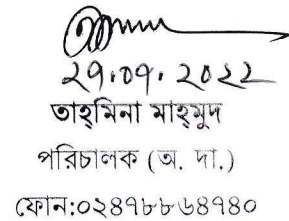 ২৭.০৭.২০২২
তাহ্‌মিনা মাহ্‌মুদ
পরিচালক (অ. দা.)
ফোন:০২৪৭৮৮৬৪৭৪০